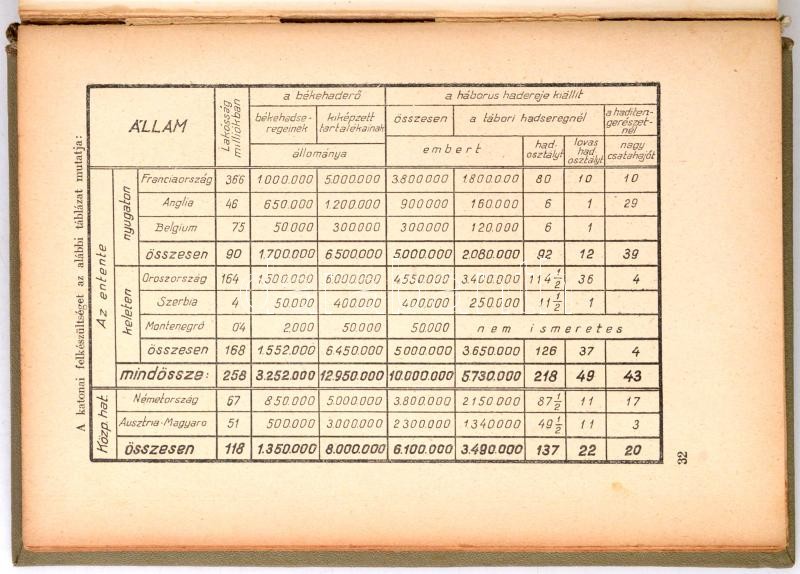 A katonai felkészültséget az alábbi táblázat mutatja:
ÁLLAM
Lakósság milliókban
a békehaderő
a háborus haderejé kiállít
békehadse-regeinek
kiképzett tartalékainak
állománya
összesen
a tábori hadseregnél
a haditen-gerészet-nél
embert
had-osztályt
lovas had osztályt
nagy csatahajót
Az entente
nyugaton
Franciaország 366 1.000.000 5.000.000 3.800.000 1.800.000 80 10 10
Anglia 46 650.000 1.200.000 900.000 160.000 6 1 29
Belgium 75 50.000 300.000 300.000 120.000 6 1
összesen 90 1.700.000 6.500.000 5.000.000 2.080.000 92 12 39
keleten
Oroszország 164 1.500.000 6.000.000 4.550.000 3.400.000 114 1/2 36 4
Szerbia 4 50.000 400.000 400.000 250.000 11 1/2 1
Montenegró 04 2.000 50.000 50.000 nem ismeretes
összesen 168 1.552.000 6.450.000 5.000.000 3.650.000 126 37 4
mindössze: 258 3.252.000 12.950.000 10.000.000 5.730.000 218 49 43
Közp. hat.
Németország 67 850.000 5.000.000 3.800.000 2.150.000 87 1/2 11 17
Ausztria-Magyaro 51 500.000 3.000.000 2.300.000 1.340.000 49 1/2 11 3
összesen 118 1.350.000 8.000.000 6.100.000 3.490.000 137 22 20
32